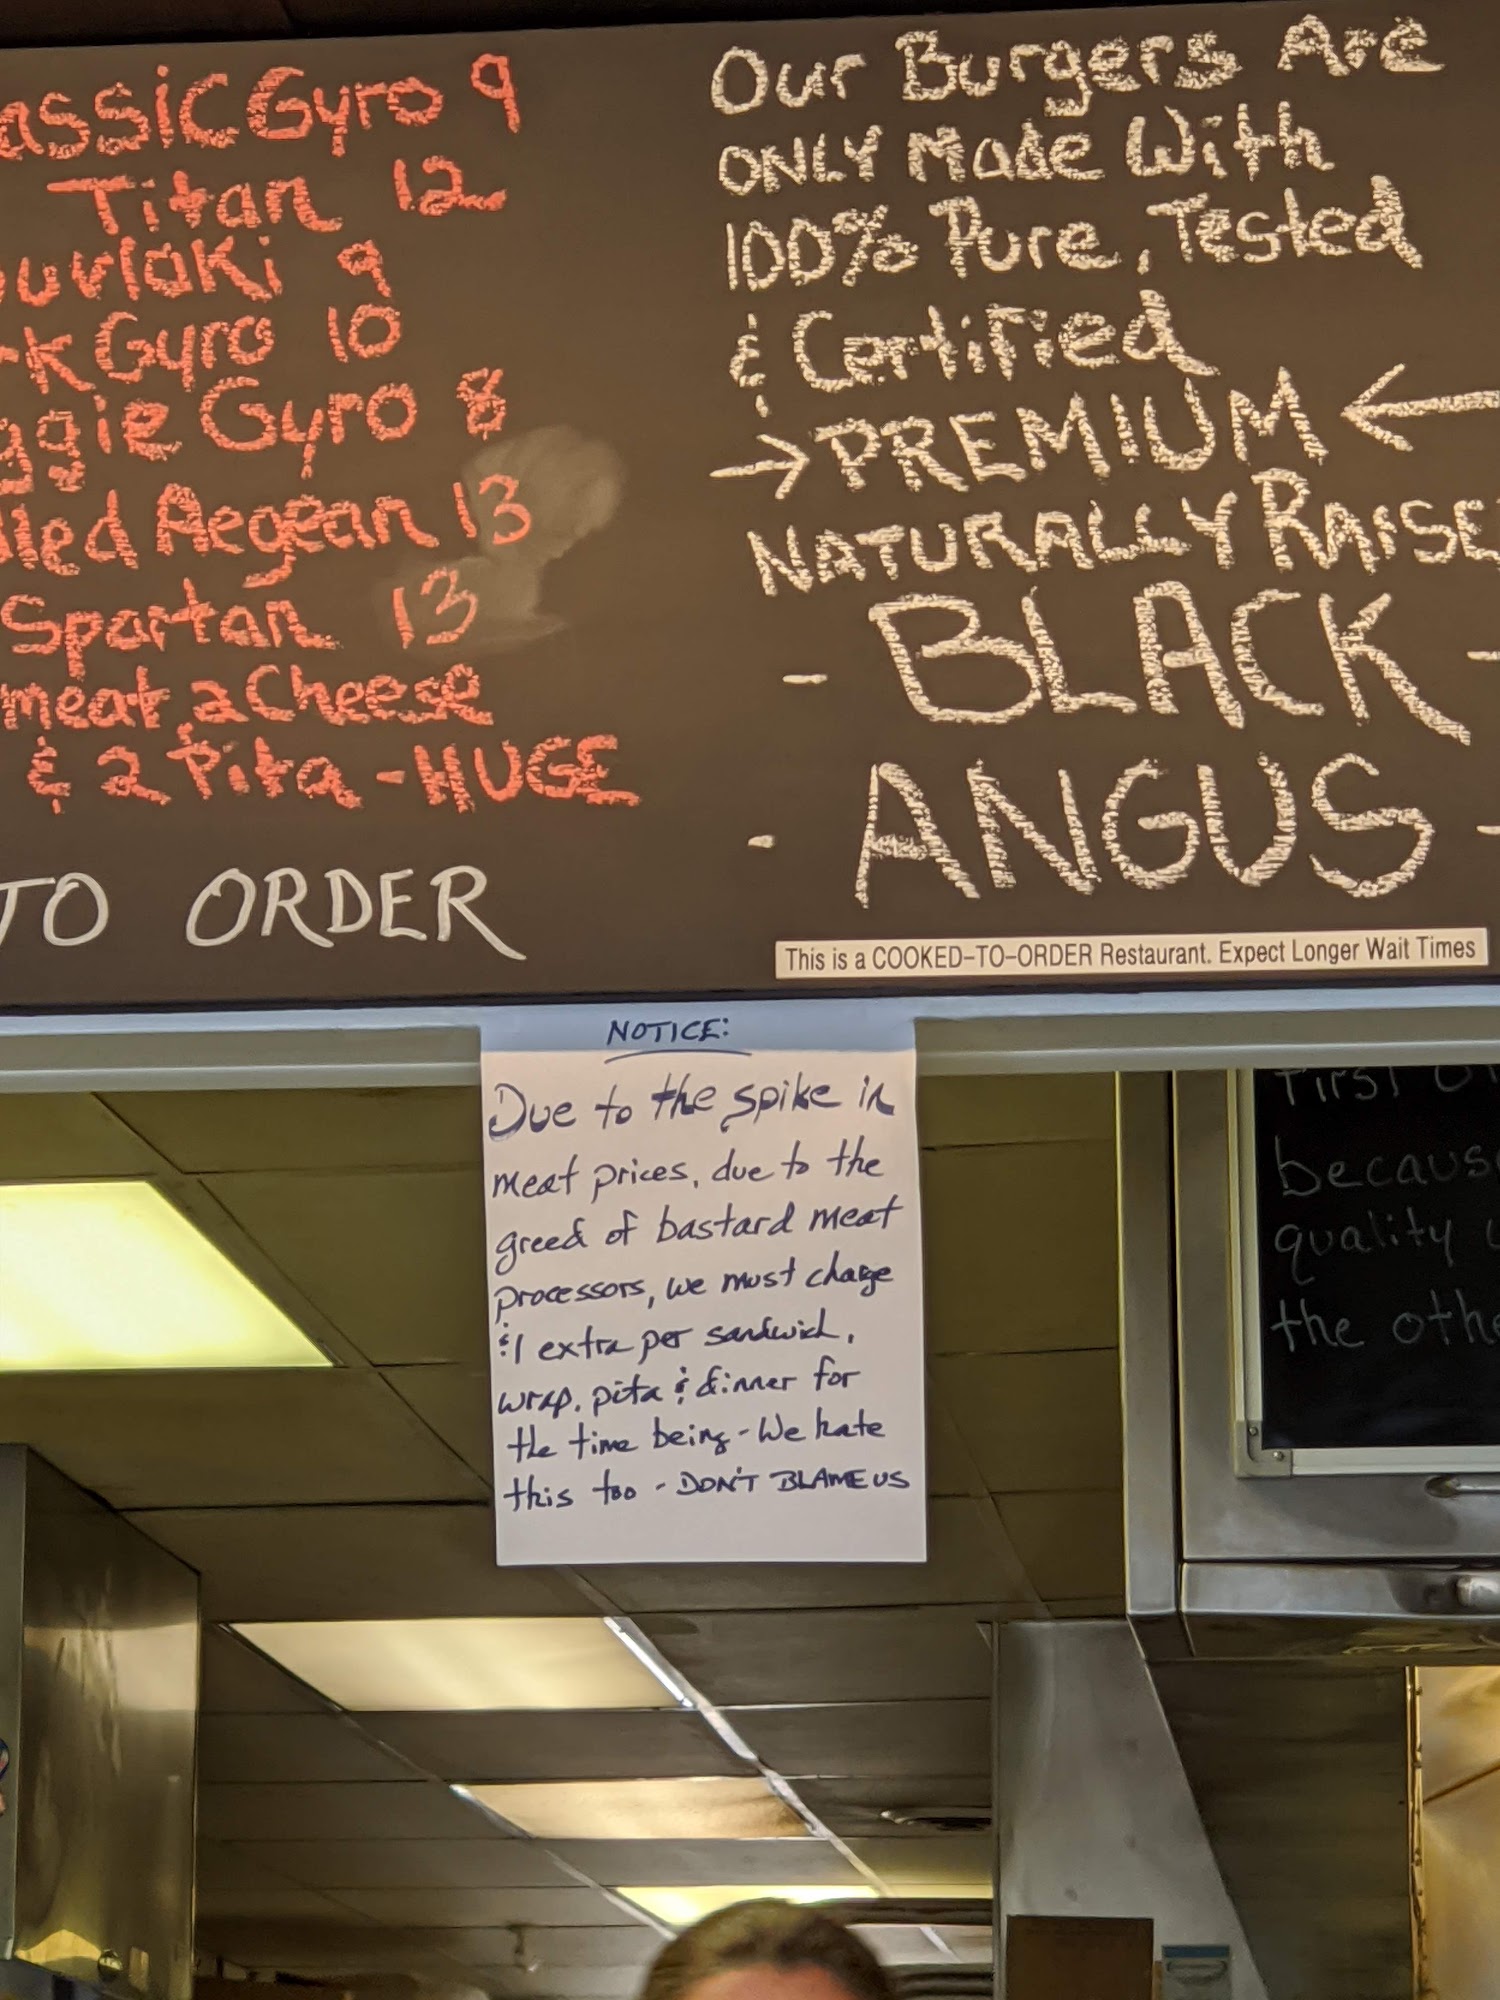 Gyro 9
Titan 12
9
Gyro 10
Gyro 8
Aegean 13
Spartan 13
meat, 2 Cheese
& 2 Pita - HUGE
TO ORDER
Our Burgers Are
ONLY Made With
100% Pure, Tested
& Certified
→ PREMIUM ←
NATURALLY RAISE
- BLACK -
- ANGUS -
This is a COOKED-TO-ORDER Restaurant. Expect Longer Wait Times
NOTICE:
Due to the spike in
meat prices, due to the
greed of bastard meat
processors, we must charge
$1 extra per sandwich,
wrap, pita & dinner for
the time being - We hate
this too - DON'T BLAME US
First
becaus
quality
the othe